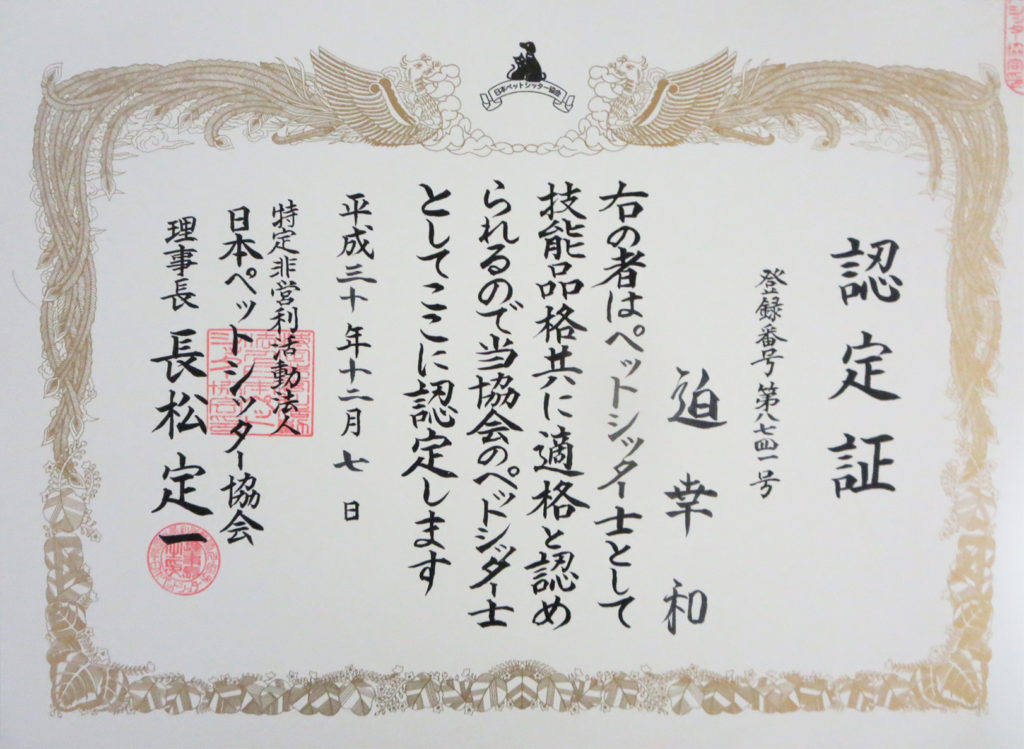 日本ペットシッター協会
認定証
登録番号第八七四一号
迫幸和
右の者はペットシッター士として
技能品格共に適格と認め
られるので当協会のペットシッター士
としてここに認定します
平成三十年十二月七日
特定非営利活動法人
日本ペットシッター協会
理事長 長松定一